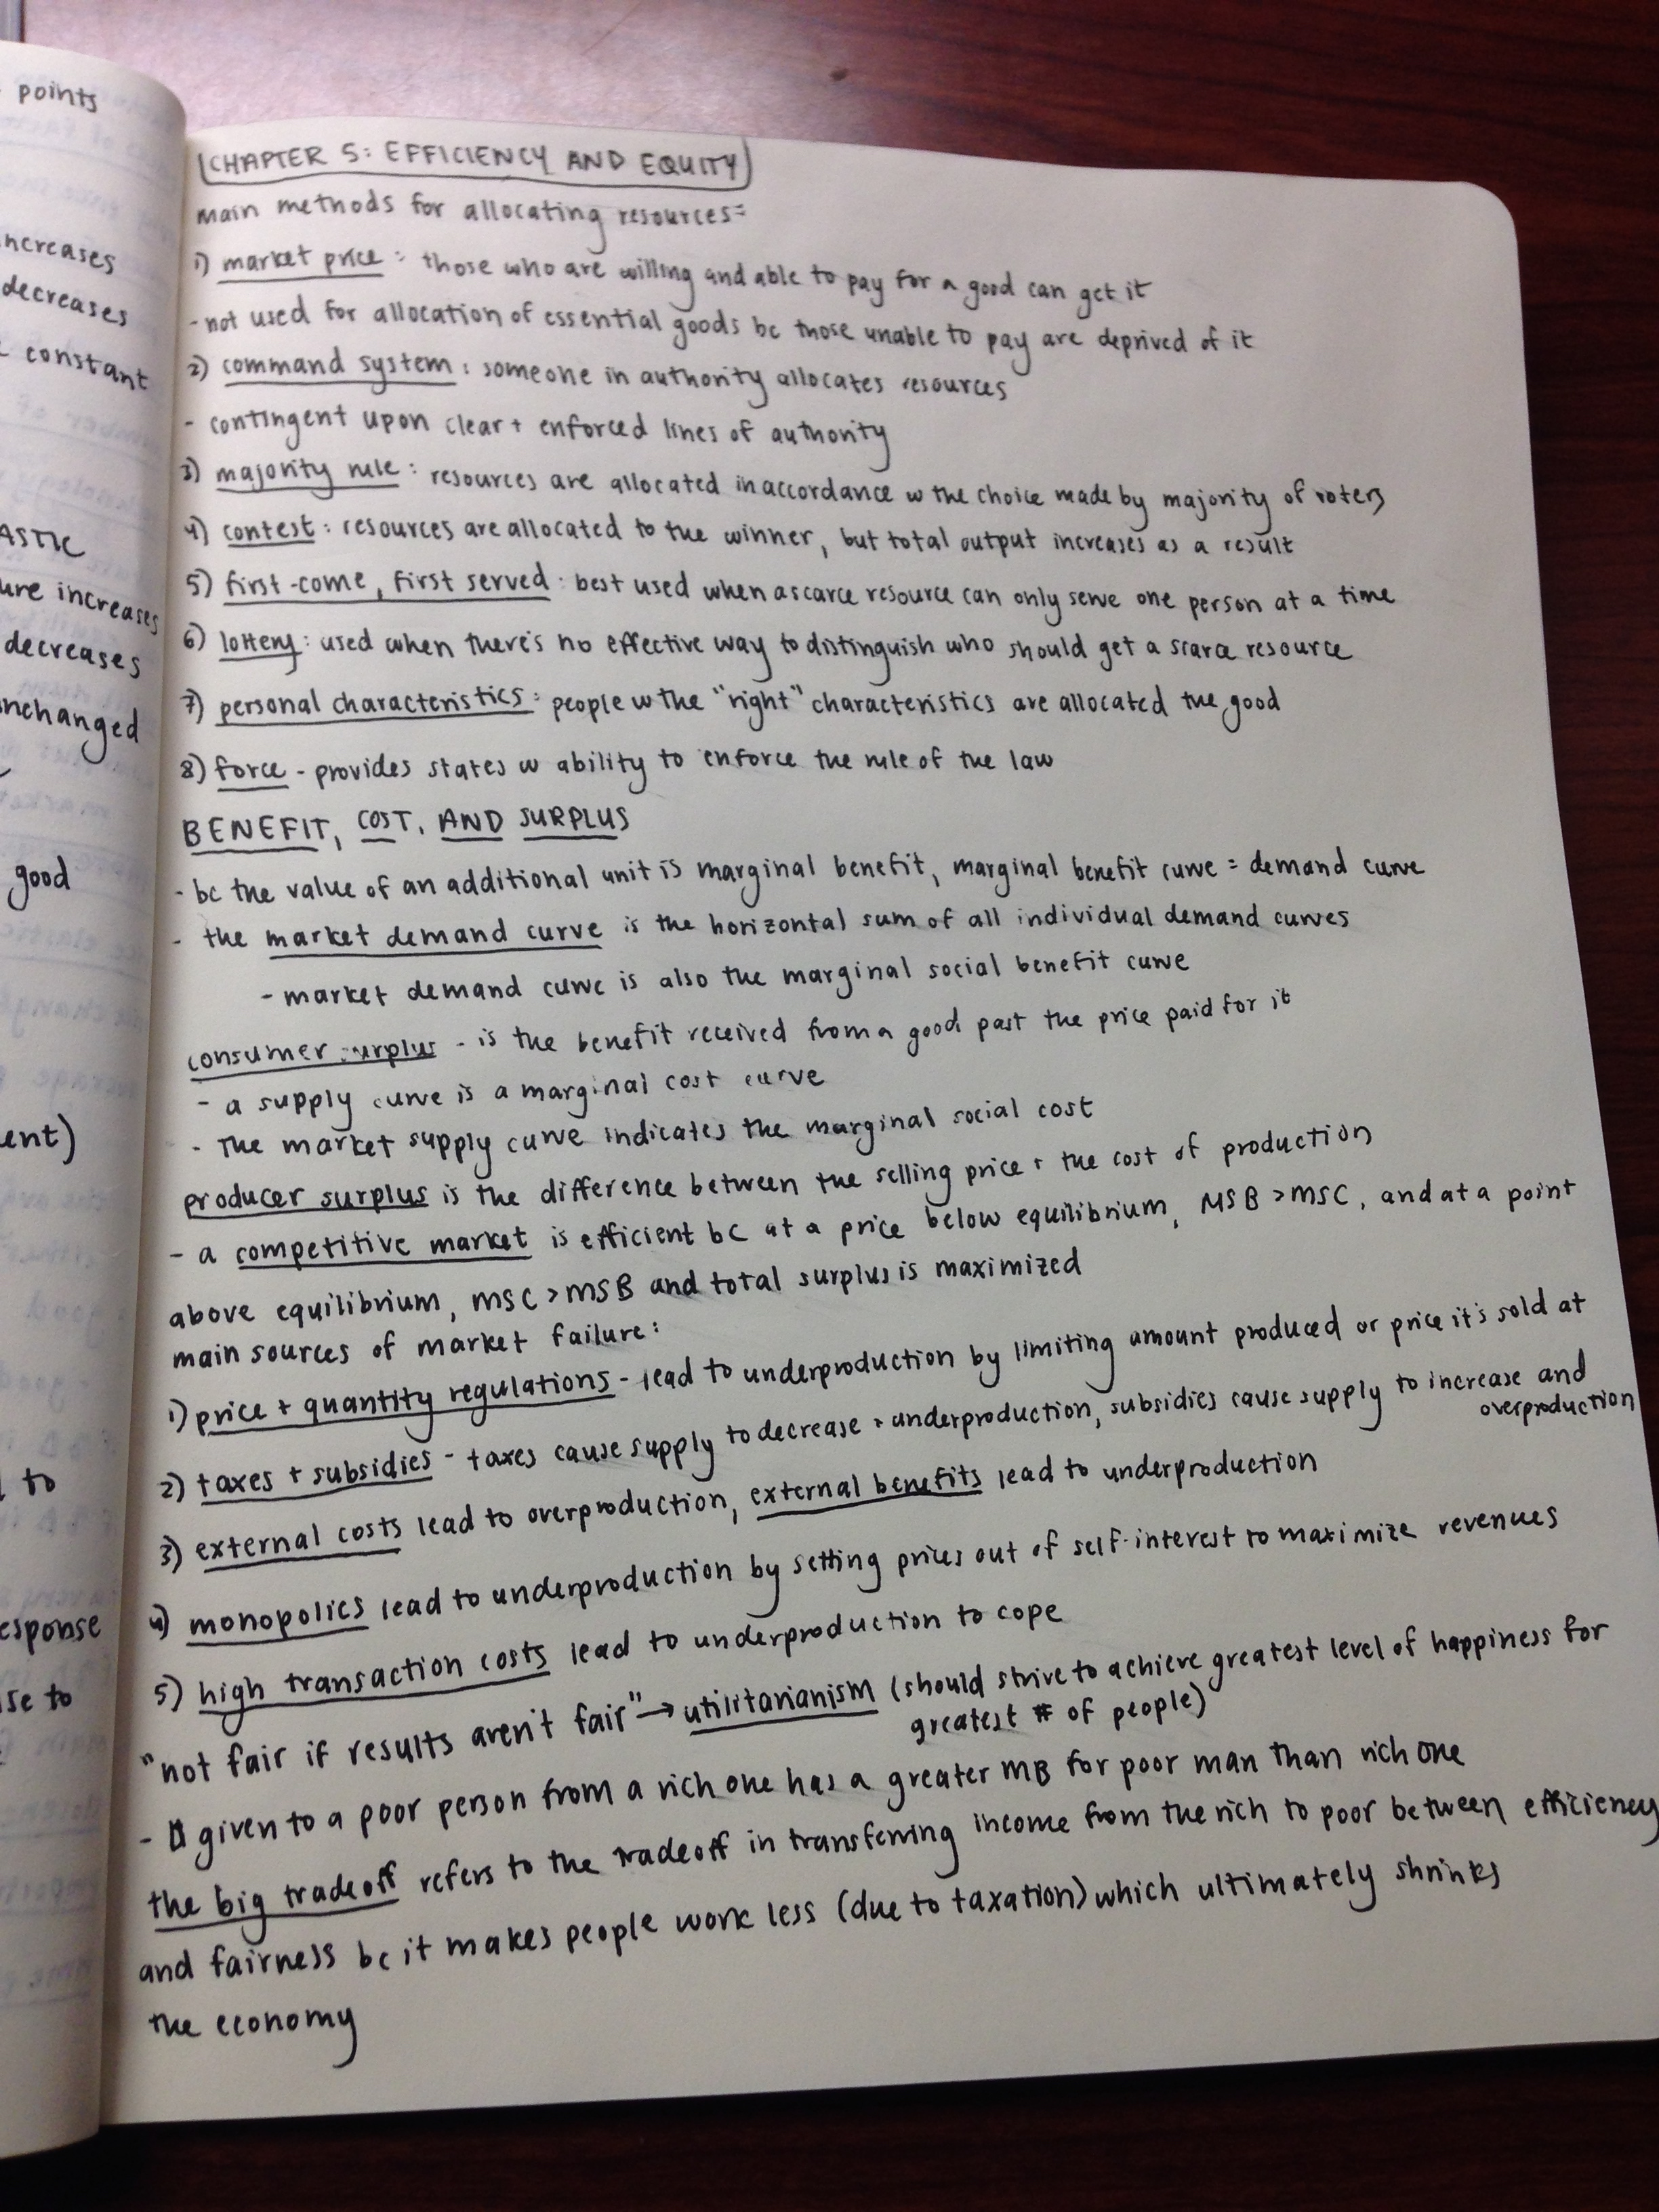 points
increases
decreases
constant
ASTIC
ure increases
decreases
unchanged
good
ent)
to
esponse
se to
CHAPTER 5: EFFICIENCY AND EQUITY
main methods for allocating resources:
1) market price: those who are willing and able to pay for a good can get it
- not used for allocation of essential goods bc those unable to pay are deprived of it
2) command system: someone in authority allocates resources
- contingent upon clear + enforced lines of authority
3) majority rule: resources are allocated in accordance w the choice made by majority of voters
4) contest: resources are allocated to the winner, but total output increases as a result
5) first-come, first served: best used when a scarce resource can only serve one person at a time
6) lottery: used when there's no effective way to distinguish who should get a scarce resource
7) personal characteristics: people w the "right" characteristics are allocated the good
8) force - provides states w ability to enforce the rule of the law
BENEFIT, COST, AND SURPLUS
- bc the value of an additional unit is marginal benefit, marginal benefit curve = demand curve
- the market demand curve is the horizontal sum of all individual demand curves
- market demand curve is also the marginal social benefit curve
consumer surplus - is the benefit received from a good past the price paid for it
- a supply curve is a marginal cost curve
- The market supply curve indicates the marginal social cost
producer surplus is the difference between the selling price + the cost of production
- a competitive market is efficient bc at a price below equilibrium, MSB > MSC, and at a point
above equilibrium, MSC > MSB and total surplus is maximized
main sources of market failure:
1) price + quantity regulations - lead to underproduction by limiting amount produced or price it's sold at
2) taxes + subsidies - taxes cause supply to decrease + underproduction, subsidies cause supply to increase and
overproduction
3) external costs lead to overproduction, external benefits lead to underproduction
4) monopolies lead to underproduction by setting prices out of self-interest to maximize revenues
5) high transaction costs lead to underproduction to cope
"not fair if results aren't fair" → utilitarianism (should strive to achieve greatest level of happiness for
greatest # of people)
- given to a poor person from a rich one has a greater MB for poor man than rich one
the big tradeoff refers to the tradeoff in transferring income from the rich to poor between efficiency
and fairness bc it makes people work less (due to taxation) which ultimately shrinks
the economy